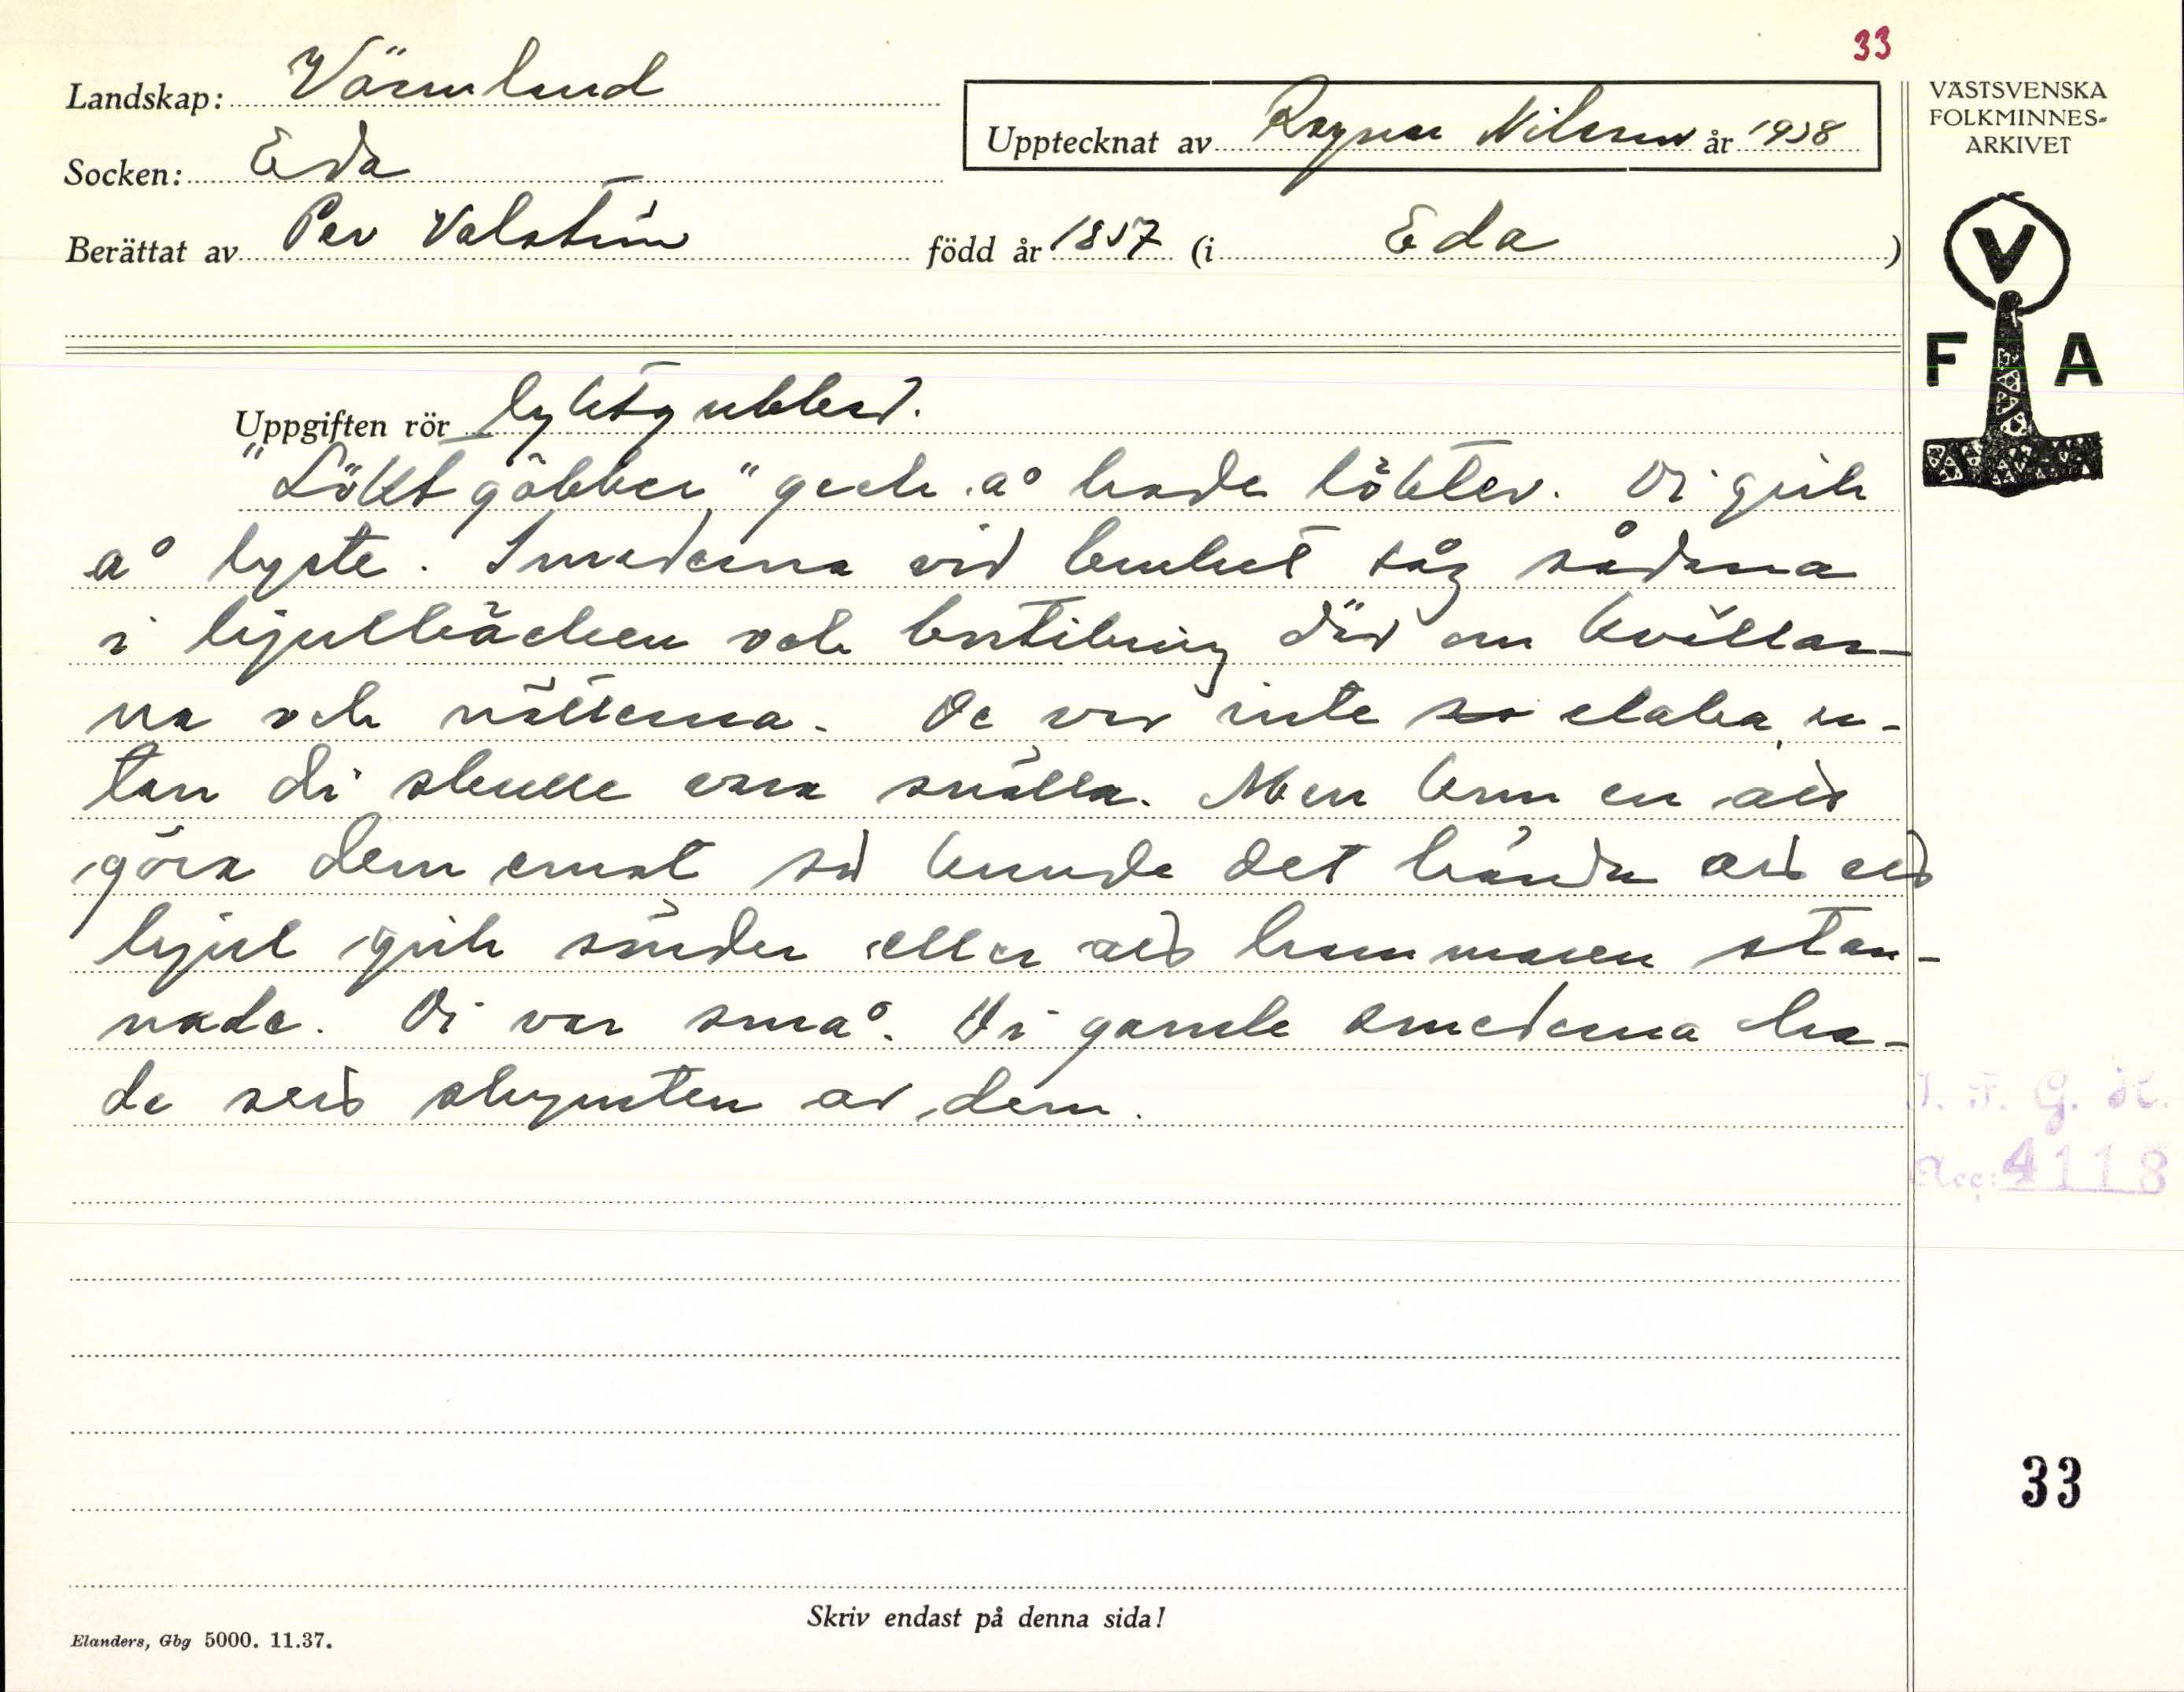 33
Landskap: Värmland
Upptecknat av Ragnar Nilsson år 1938
VÄSTSVENSKA
FOLKMINNES-
ARKIVET
Socken: Eda
Berättat av Per Valstein född år 1857 (i Eda)
V
F A
Uppgiften rör lyktgubbar.
"Löktgöbber" geck å hade lökter. Di gick
å lyste. Smederna vid bruket såg sådana
i hjulbäcken och omkring där om kvällar-
na och nätterna. De var inte så elaka, u-
tan di skulle vara snälla. Men kom en att
göra dem emot så kunde det hända att ett
hjul gick sönder eller att hammaren stan-
nade. Di var små. Di gamle smederna ha-
de sett skymten av dem.
I. F. G. H.
Acc: 4118
33
Skriv endast på denna sida!
Elanders, Gbg 5000. 11.37.